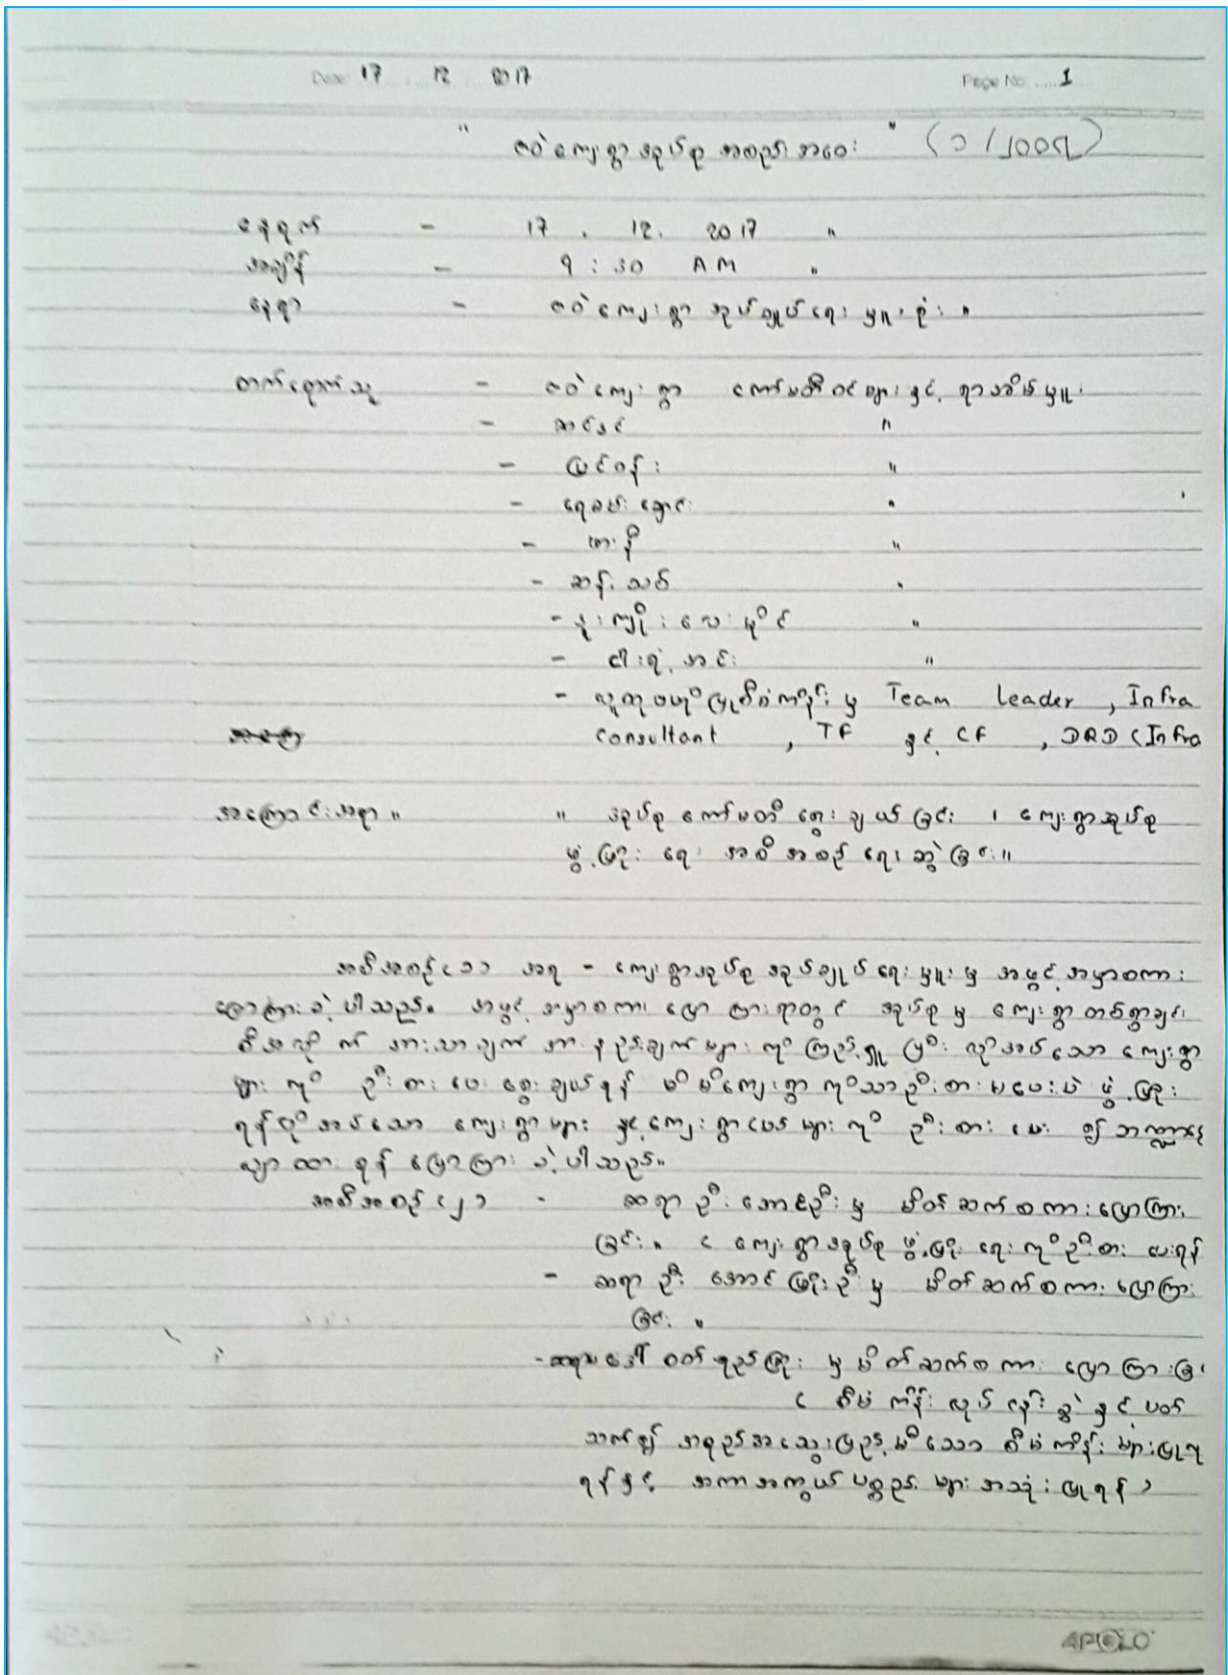 Date 17 12 2017 Page No. 1
" ဇဝဲကျေးရွာအုပ်စု အစည်းအဝေး " (၁/၂၀၁၇)
နေ့ရက် - 17 . 12 . 2017 "
အချိန် - 9 : 30 AM "
နေရာ - ဇဝဲကျေးရွာ အုပ်ချုပ်ရေးမှူးရုံး "
တက်ရောက်သူ - ဇဝဲကျေးရွာ ကော်မတီဝင်များနှင့် ရာအိမ်မှူး
- ဆင်ခင် "
- မြင်ဝန်း "
- ရေခမ်းချောင်း "
- "
- ဆန်းသစ် "
- "
- "
- လူထုဗဟိုပြုစီမံကိန်းမှ Team Leader , Infra
consultant , TF နှင့် CF , DRD (Infra
အကြောင်းအရာ " " အုပ်စုကော်မတီ ရွေးချယ်ခြင်း ၊ ကျေးရွာအုပ်စု
ဖွံ့ဖြိုးရေး အစီအစဉ် ရေးဆွဲခြင်း။
အစီအစဉ် (၁) အရ - ကျေးရွာအုပ်စု အုပ်ချုပ်ရေးမှူးမှ အဖွင့်အမှာစကား
ပြောကြားခဲ့ပါသည်။ အဖွင့်အမှာစကား ပြောကြားရာတွင် အုပ်စုမှ ကျေးရွာတစ်ရွာချင်း
စီအလိုက် အားသာချက် အားနည်းချက်များကို ကြည့်ရှုပြီး လိုအပ်သောကျေးရွာ
များကို ဦးစားပေးရွေးချယ်ရန် မိမိကျေးရွာကိုသာဦးစားမပေးပဲ ဖွံ့ဖြိုး
ရန်လိုအပ်သော ကျေးရွာများ နှင့်ကျေးရွာပေါင်းများကို ဦးစားပေး၍ ဘဏ္ဍာငွေ
လျာထားရန် ပြောကြားခဲ့ပါသည်။
အစီအစဉ် (၂) - ဆရာဦးအောင်ဦးမှ မိတ်ဆက်စကားပြောကြား
ခြင်း။ ( ကျေးရွာအုပ်စု ဖွံ့ဖြိုးရေးကိုဦးစားပေးရန်
- ဆရာဦးအောင်မြိုးဦးမှ မိတ်ဆက်စကားပြောကြား
ခြင်း။
- ဆရာမဒေါ် မှ မိတ်ဆက်စကား ပြောကြားခြင်း
( စီမံကိန်းလုပ်ငန်းခွဲနှင့်ပတ်
သက်၍ အရည်အသွေးပြည့်မီသော စီမံကိန်းများပြုလု
ရန်နှင့် အကာအကွယ်ပစ္စည်းများအသုံးပြုရန် )
APOLO